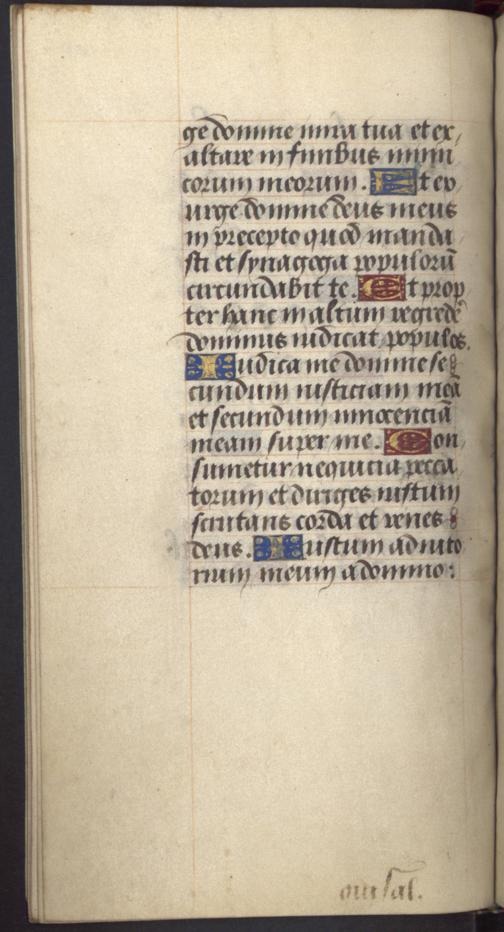 ge domine in ira tua et ex,
altare in finibus inimi
corum meorum. Et ex
urge domine deus meus
in precepto quod manda
sti et synagoga populorū
circundabit te. Et prop
ter hanc in altum regrede
dominus iudicat populos.
Iudica me domine se
cundum iusticiam meā
et secundum innocenciā
meam super me. Con
sumetur nequicia pecca
torum et diriges iustum
scrutans corda et renes
deus. Iustum adiuto
rium meum a domino:
qui sal.